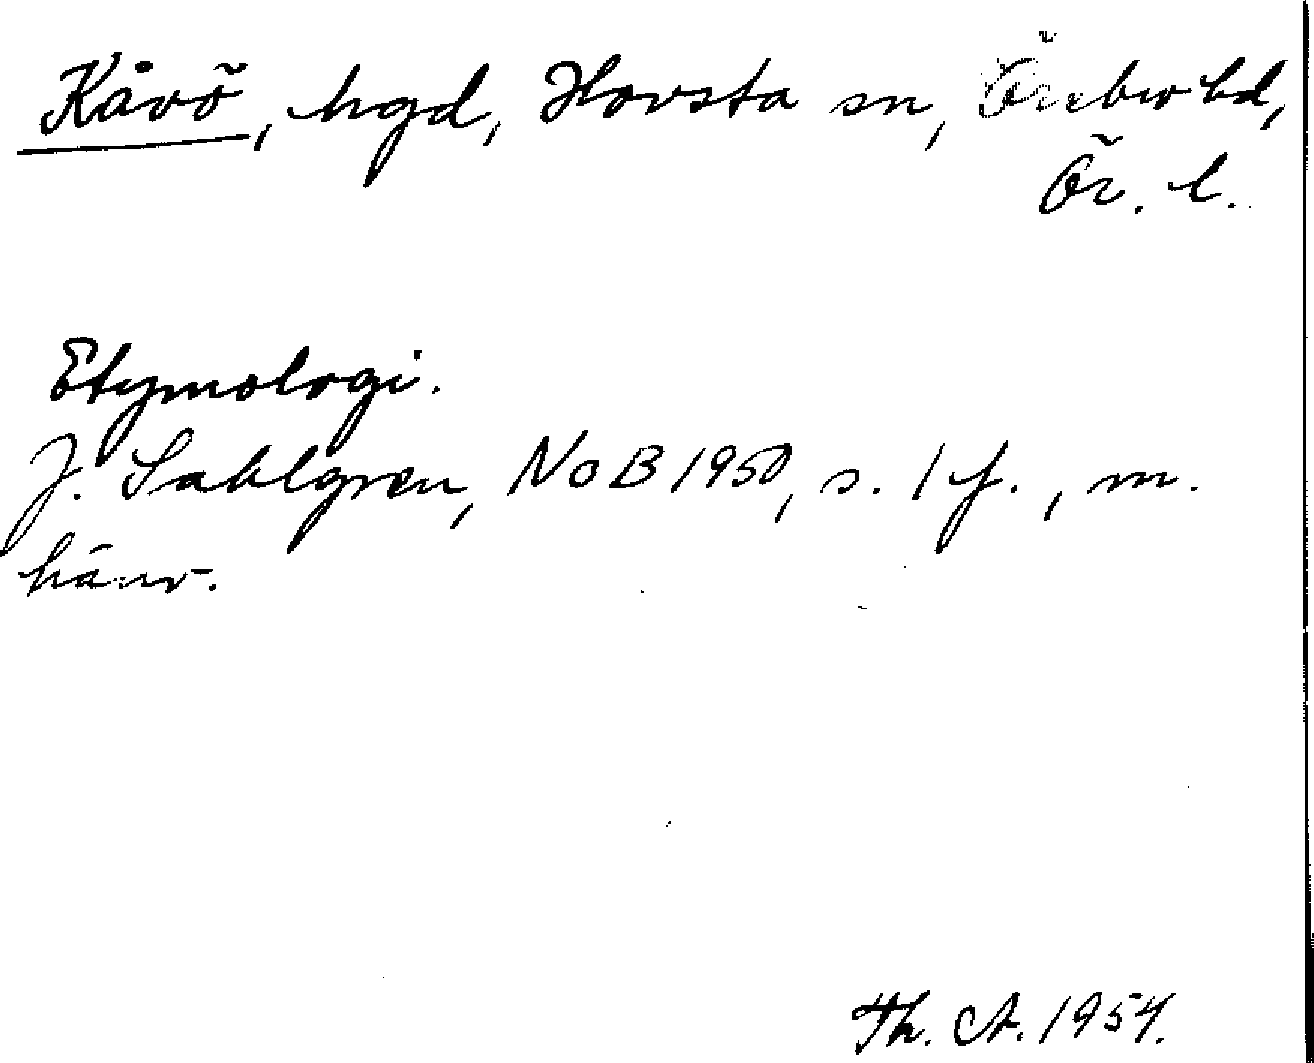 Kåvö, hgd, Hovsta sn, Örebro hd,
Ör. l.
Etymologi.
J. Sahlgren, NoB 1950, s. 1 f., m.
hänv.
Th. A. 1954.